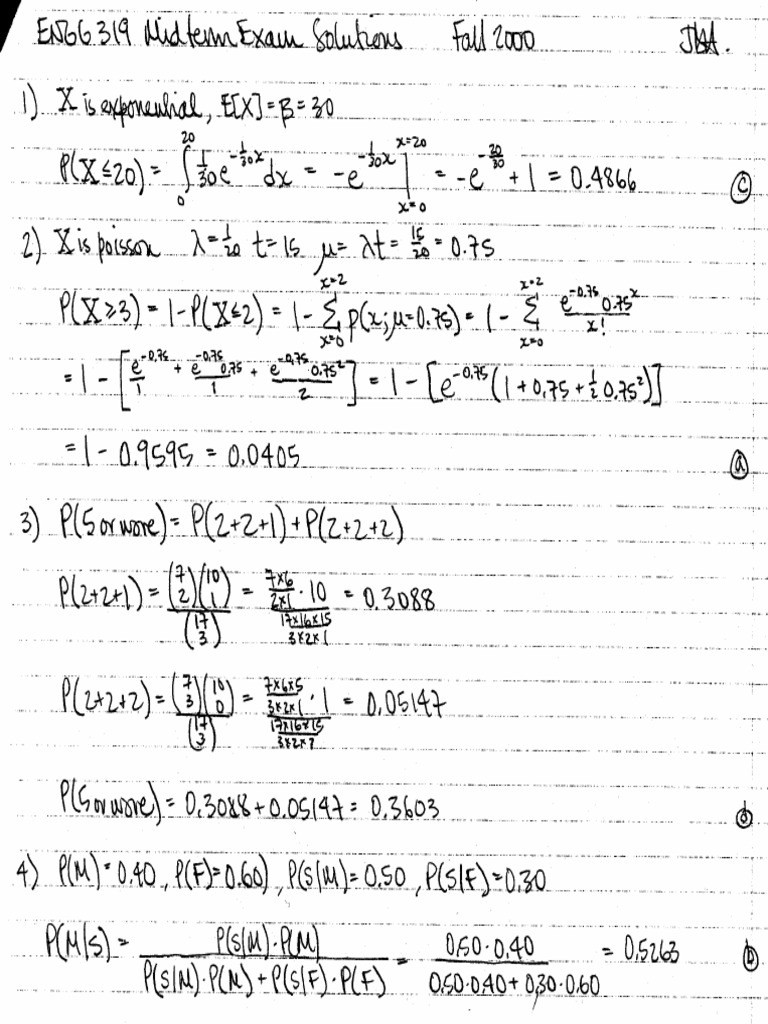 ENGG 319 Midterm Exam Solutions Fall 2000 JBA.
1) X is exponential, E[X] = β = 30
P(X ≤ 20) = ∫₀²⁰ 1/30 e^(-1/30 x) dx = -e^(-1/30 x) |_(x=0)^(x=20) = -e^(-20/30) + 1 = 0.4866 (c)
2) X is poisson λ = 1/20 t = 15 μ = λt = 15/20 = 0.75
P(X ≥ 3) = 1 - P(X ≤ 2) = 1 - Σ_(x=0)^(x=2) p(x; μ=0.75) = 1 - Σ_(x=0)^(x=2) e^(-0.75) 0.75^x / x!
= 1 - [e^(-0.75)/1 + e^(-0.75) 0.75/1 + e^(-0.75) 0.75²/2] = 1 - [e^(-0.75) (1 + 0.75 + 1/2 0.75²)]
= 1 - 0.9595 = 0.0405 (a)
3) P(5 or more) = P(2+2+1) + P(2+2+2)
P(2+2+1) = (7 2)(10 1) / (17 3) = (7×6 / 2×1 · 10) / (17×16×15 / 3×2×1) = 0.3088
P(2+2+2) = (7 3)(10 0) / (17 3) = (7×6×5 / 3×2×1 · 1) / (17×16×15 / 3×2×1) = 0.05147
P(5 or more) = 0.3088 + 0.05147 = 0.3603 (d)
4) P(M) = 0.40, P(F) = 0.60), P(S|M) = 0.50, P(S|F) = 0.30
P(M|S) = P(S|M)·P(M) / P(S|M)·P(M) + P(S|F)·P(F) = 0.50·0.40 / 0.50·0.40 + 0.30·0.60 = 0.5263 (b)